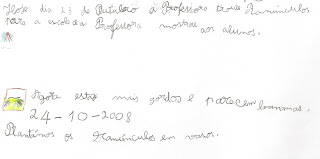 Hoje dia 23 de Outubro a Professora trouxe Ranúnculos
para a escola a Professora mostrou aos alunos.
Agora estão mais gordos e parecem bananas.
24-10-2008
Plantámos os ranúnculos em vasos.